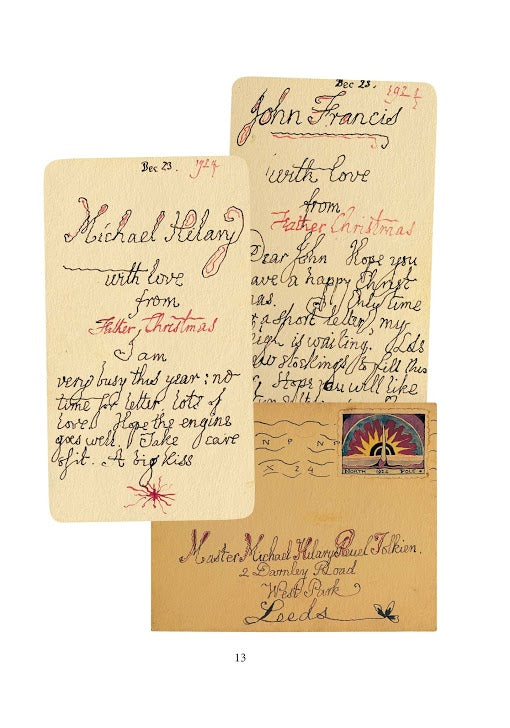 Dec 23. 1924
Michael Hilary
with love
from
Father Christmas
I am
very busy this year: no
time for letter. Lots of
love. Hope the engine
goes well. Take care
of it. A big kiss
Dec 23. 1924
John Francis
with love
from
Father Christmas
Dear John Hope you
ave a happy Christ
mas. Only time
a short letter, my
eigh is waiting. Lots
ew stockings to fill this
Hope you will like
N P N P
X 24
NORTH 1924 POLE
Master Michael Hilary Reuel Tolkien.
2 Darnley Road
West Park
Leeds
13